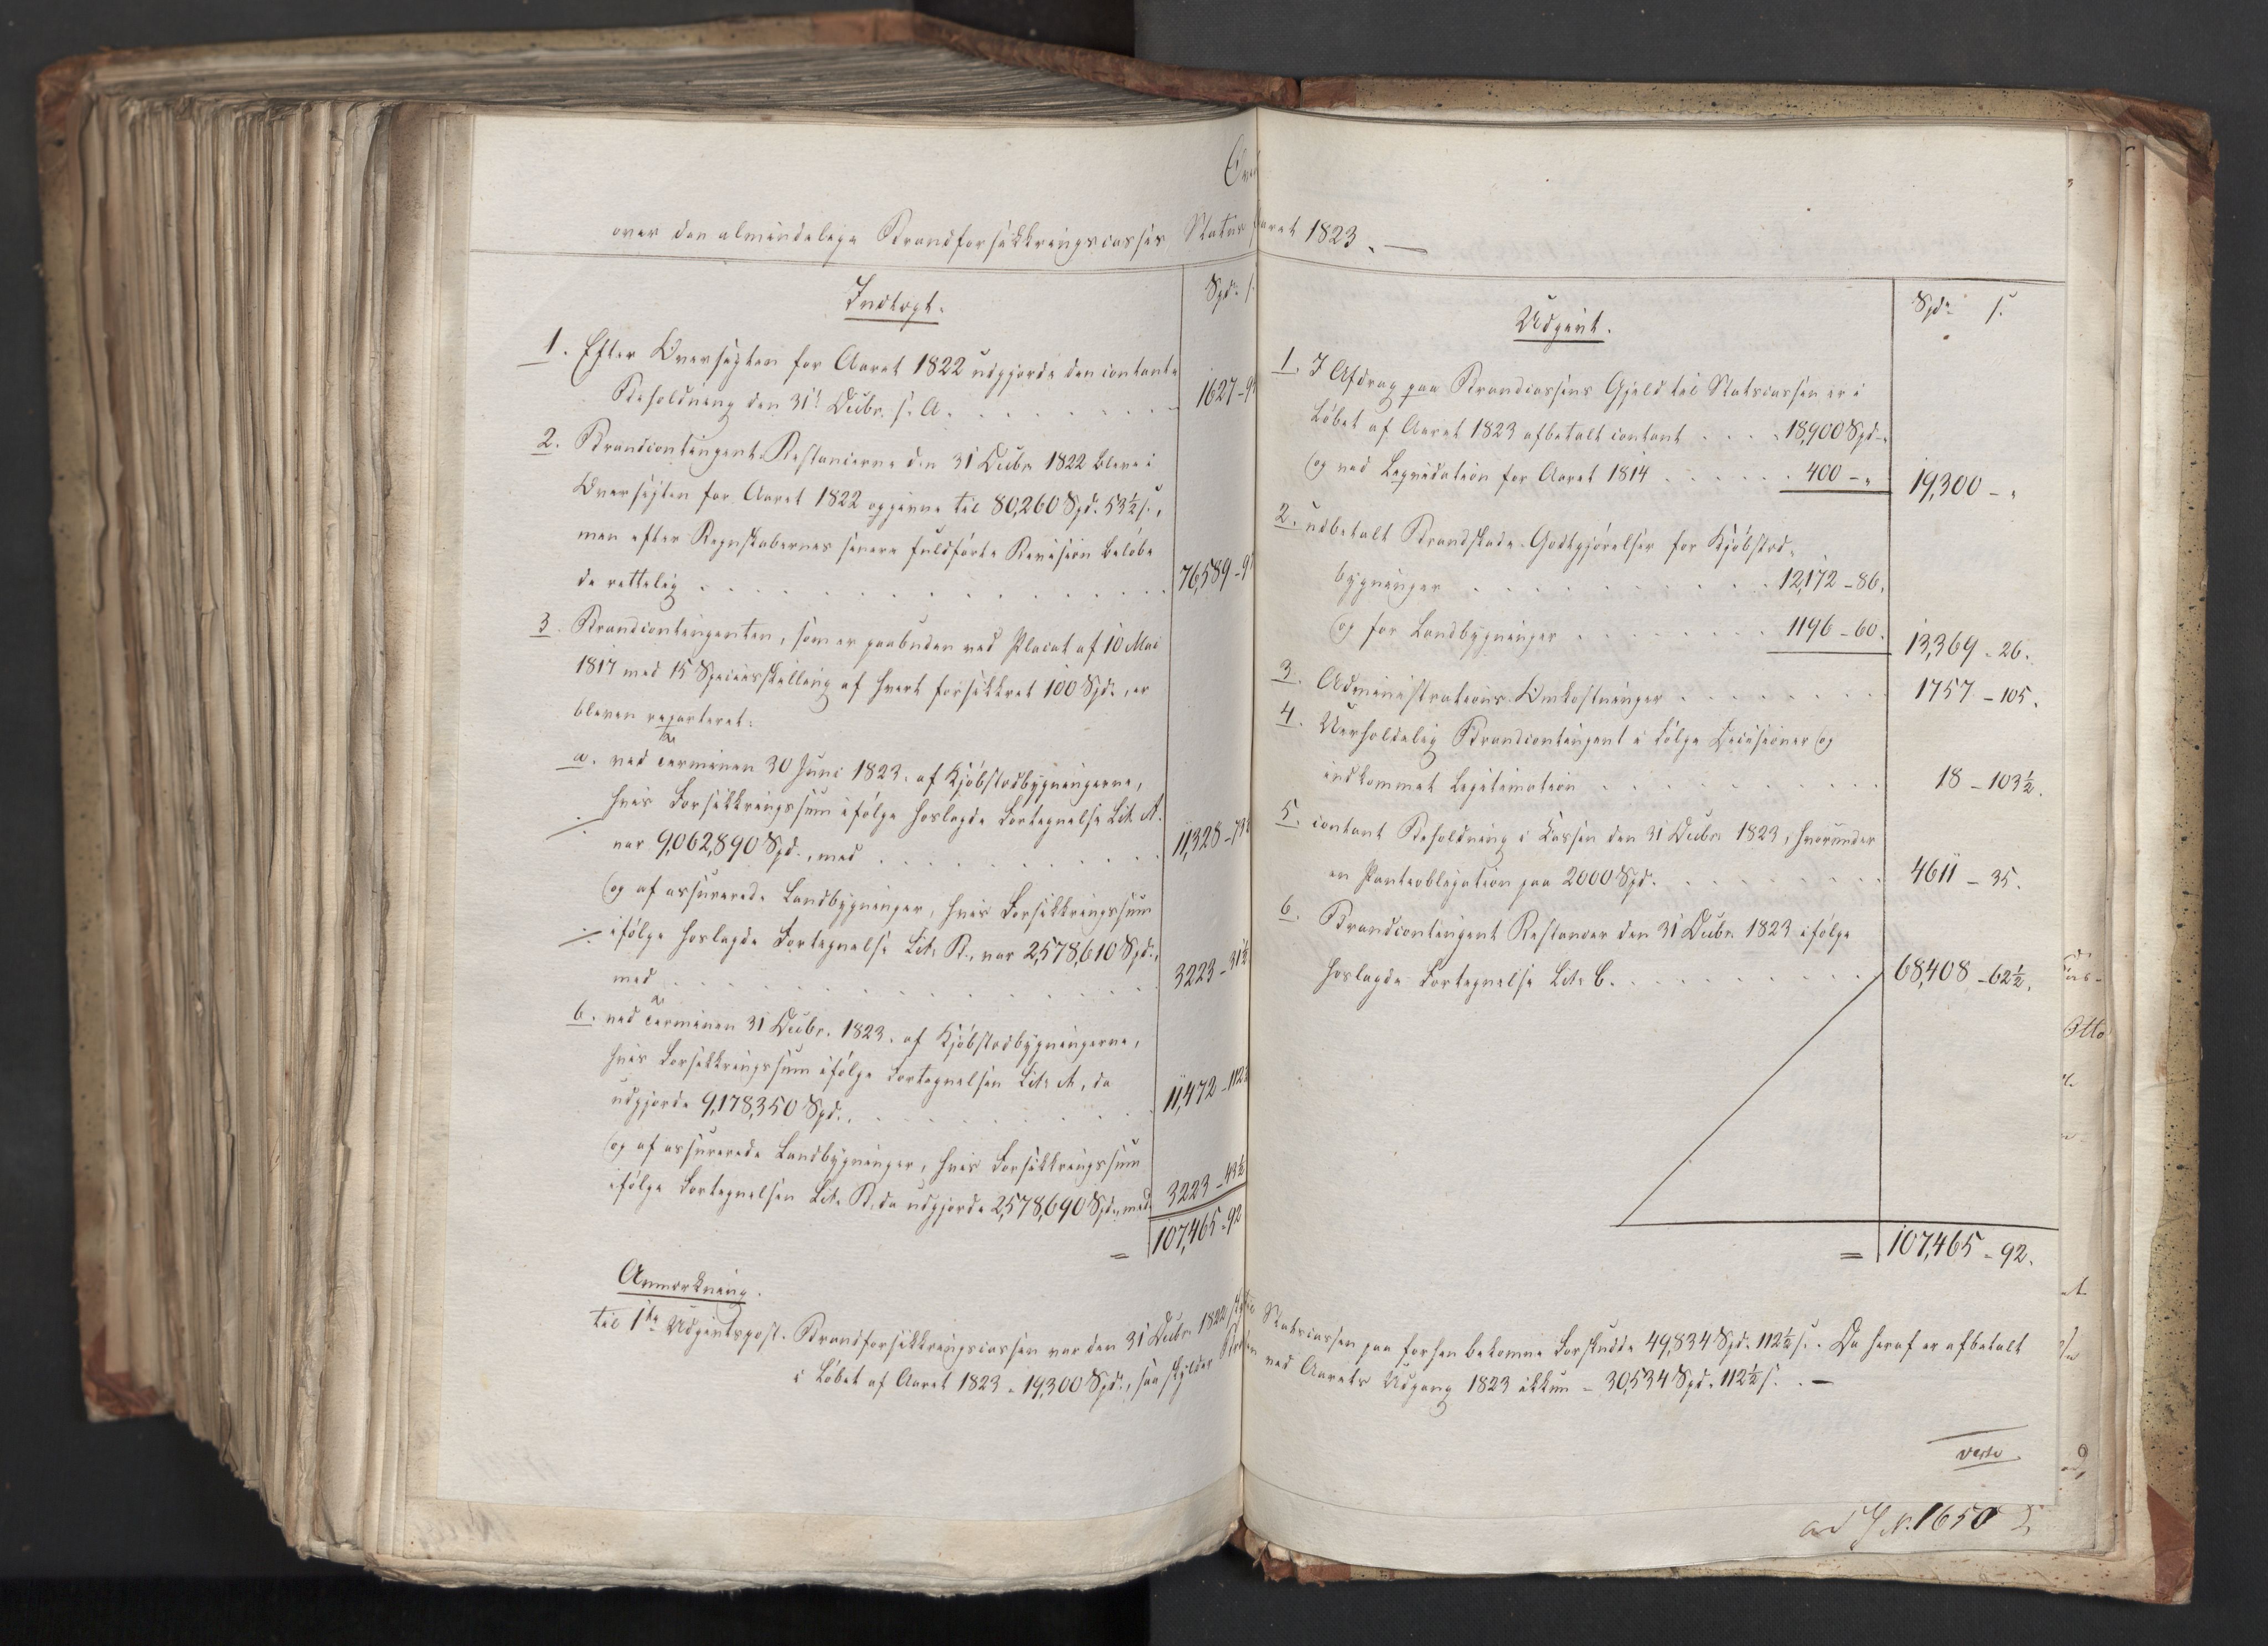 over den almindelige Brandforsikkringscasses Status
Aaret 1823. —
Indtægt.
Spd. s.
1. Efter Oversigten for Aaret 1822 udgjorde den contante
Beholdning den 31t Decbr. s. A. . . . . . . . . 1627 - 9
2. Brandcontingent-Restancerne den 31 Decbr. 1822 bleve i
Oversigten for Aaret 1822 opgivne til 80,260 Spd. 53½ s.,
men efter Regnskabernes senere fuldførte Revision beløbe
de rettelig . . . . . . . . . . 76,589 - 9
3. Brandcontingenten, som er paabuden ved Placat af 10 Mai
1817 med 15 Speciesskilling af hvert forsikkret 100 Spd., er
bleven reparteret:
a. ved Terminen 30 Juni 1823. af Kjøbstadbygningerne,
hvis Forsikkringssum ifølge hoslagde Fortegnelse Litr. A.
var 9,062,890 Spd., med . . . . . . . . 11,328 - 73½
og af assurerede Landbygninger, hvis Forsikkringssum
ifølge hoslagde Fortegnelse Litr. B., var 2,578,610 Spd.,
med . . . . . . . . . . 3223 - 31½
b. ved Terminen 31 Decbr. 1823. af Kjøbstadbygningerne,
hvis Forsikkringssum ifølge Fortegnelsen Litr. A, da
udgjorde 9,178,350 Spd. . . . . . . . . 11,472 - 112½
og af assurerede Landbygninger, hvis Forsikkringssum
ifølge Fortegnelsen Litr. B. da udgjorde 2,578,690 Spd., med 3223 - 43½
= 107,465 - 92
Udgivt.
Spd. s.
1. I Afdrag paa Brandcassens Gjeld til Statscassen er i
Løbet af Aaret 1823 afbetalt contant . . . . 18,900 Spd. -
og ved Liqvidation for Aaret 1814 . . . . . . 400 - „ 19,300 - „
2. udbetalt Brandskade-Godtgjørelser for Kjøbstad-
bygninger . . . . . . . . . 12,172 - 86.
og for Landbygninger . . . . . . . 1196 - 60. 13,369 - 26.
3. Administrations-Omkostninger . . . . . . . 1757 - 105.
4. Uerholdelig Brandcontingent i følge Decisioner og
indkommet Legitimation . . . . . . . . 18 - 103½.
5. contant Beholdning i Cassen den 31 Decbr. 1823, hvorunder
en Panteobligation paa 2000 Spd. . . . . . . . 4611 - 35.
6. Brandcontingent Restancer den 31 Decbr. 1823 ifølge
hoslagde Fortegnelse Litr. C. . . . . . . . . 68,408 - 62½.
= 107,465 - 92.
Anmærkning.
til 1ste Udgivtspost. Brandforsikkringscassen var den 31 Decbr. 1822 Statscassen paa forhen bekomne Forskudde 49,834 Spd. 112½ s. Da heraf er afbetalt
i Løbet af Aaret 1823 - 19,300 Spd., saa skylder ved Aarets Udgang 1823 ikkun - 30,534 Spd. 112½ s. . —
verte
ad J. N. 1650
Otto